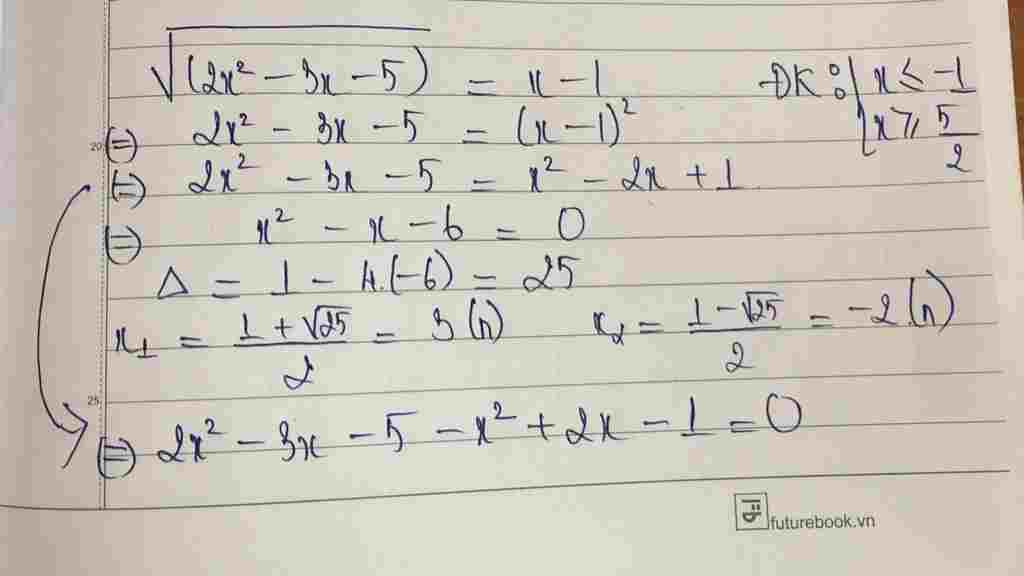 √(2x² - 3x - 5) = x - 1 ĐK: [x ≤ -1
[x ≥ 5/2
20 (=) 2x² - 3x - 5 = (x - 1)²
(=) 2x² - 3x - 5 = x² - 2x + 1
(=) x² - x - 6 = 0
Δ = 1 - 4.(-6) = 25
x₁ = (1 + √25)/2 = 3 (n) x₂ = (1 - √25)/2 = -2 (n)
25 (=) 2x² - 3x - 5 - x² + 2x - 1 = 0
futurebook.vn